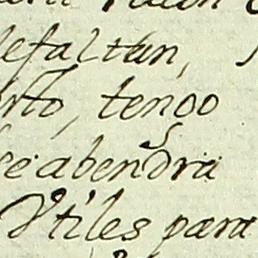 lefaltan,
rto, tengo
se abendra
Vtiles para